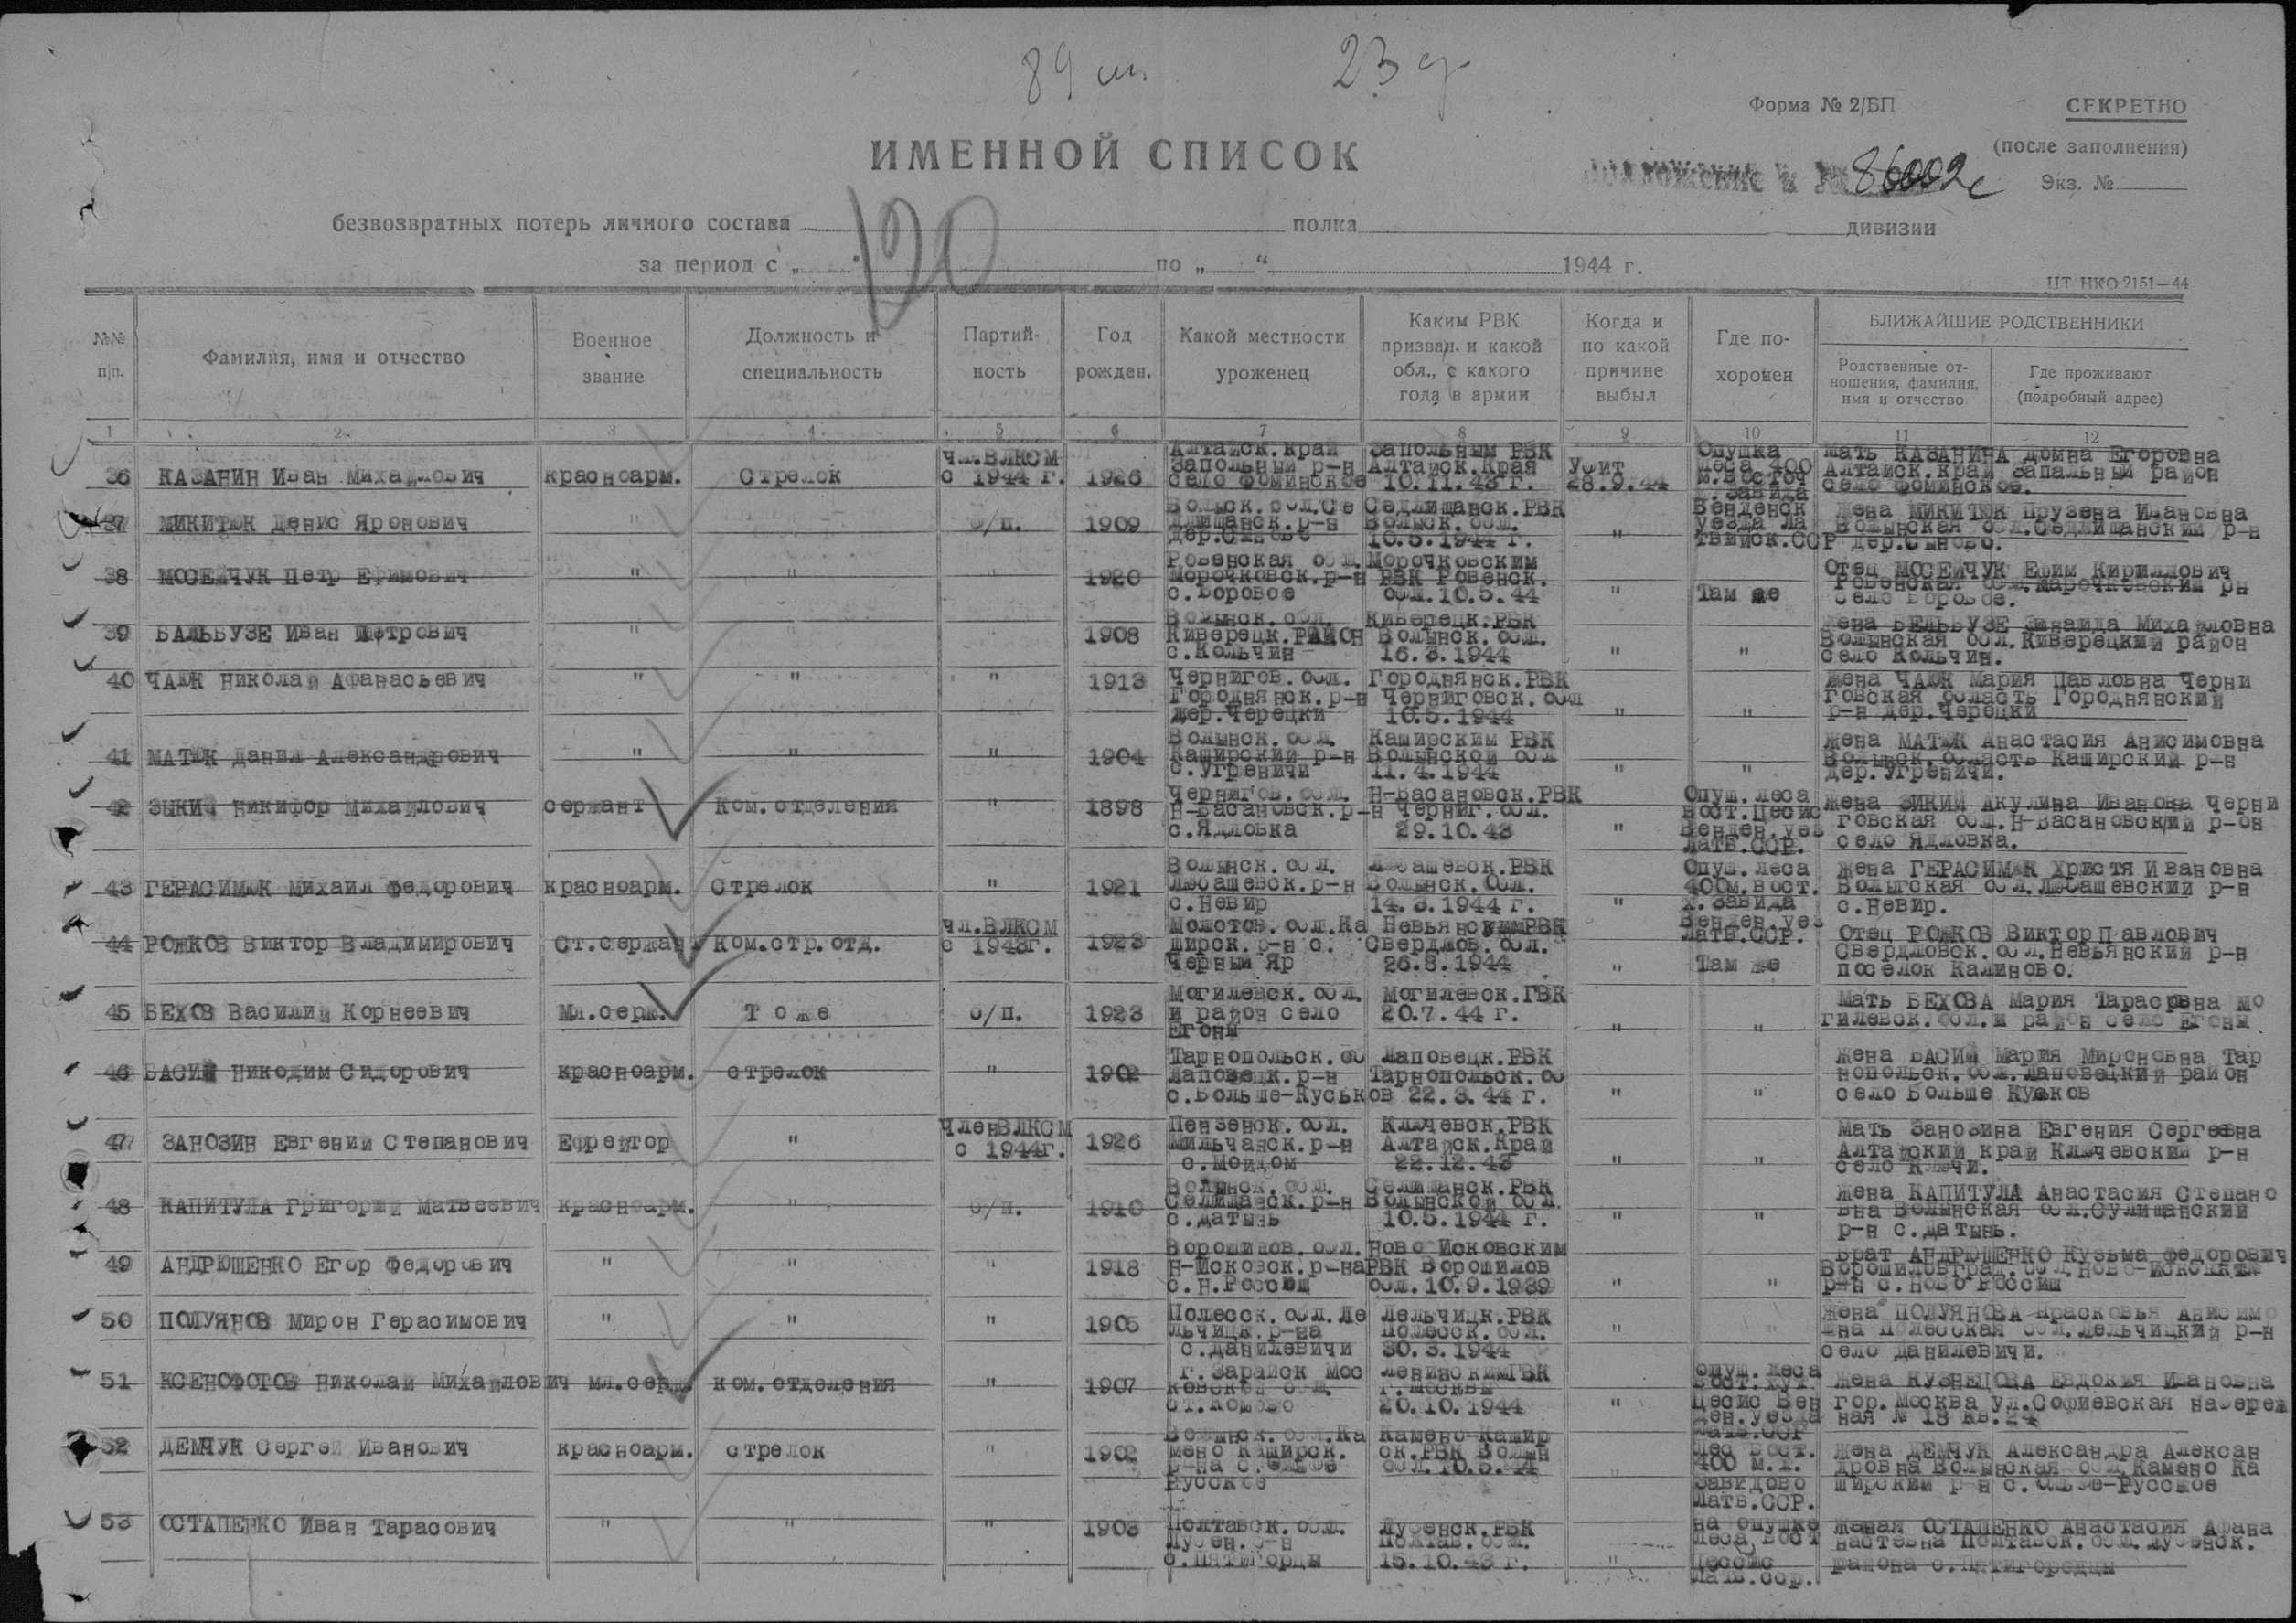 89 сп 23 д
Форма № 2/БП
СЕКРЕТНО
ИМЕННОЙ СПИСОК
(после заполнения)
86002с
Экз. №
безвозвратных потерь личного состава полка дивизии
120
за период с „ “ по „ “ 1944 г.
ЦТ НКО 2151—44
№№ п/п.
Фамилия, имя и отчество
Военное звание
Должность и специальность
Партий-ность
Год рожден.
Какой местности уроженец
Каким РВК призван. и какой обл., с какого года в армии
Когда и по какой причине выбыл
Где по-хоронен
БЛИЖАЙШИЕ РОДСТВЕННИКИ
Родственные от-ношения, фамилия, имя и отчество
Где проживают (подробный адрес)
1 2 3 4 5 6 7 8 9 10 11 12
36 КАЗАНИН Иван Михайлович красноарм. Стрелок чл.ВЛКСМ с 1944 г. 1926
Алтайск.край Запольный р-н село Фоминское
Запольным РВК Алтайск.Края 10.11.43 г.
Убит 28.9.44
Опушка леса 400 м.восточ
Мать КАЗАНИНА Домна Егоровна
Алтайск.край Запальный район
село Фоминское.
37 МИКИТЮК Денис Яронович " б/п. 1909
Седлищанск.РВК Волынск.обл. 10.5.1944 г.
"
Венденск уезда Ла твийск.ССР
Жена МИКИТЮК Прузена Ивановна
Волынская обл.Седлищанский р-н
38 МОСЕЙЧУК Петр Ефимович " " " 1920
Ровенская обл. Морочковск.р-н с.Боровое
Морочковским РВК Ровенск. обл.10.5.44
" Там же
Отец МОСЕЙЧУК Ефим Кириллович
село Боровое.
39 БАЛЬБУЗЕ Иван Петрович " " " 1908
Волынск.обл. Киверецк.РАЙОН с.Кольчин
Киверецк.РВК Волынск.обл. 16.3.1944
" "
Жена БЕЛЬБУЗЕ Зинаида Михайловна
Волынская обл.Киверецкий район
село Кольчин.
40 ЧАЮК Николай Афанасьевич " " " 1913
Чернигов.обл. Городнянск.р-н дер.Черецки
Городнянск.РВК Черниговск.обл 10.5.1944
" "
Жена ЧАЮК Мария Павловна Черни
говская область Городнянский
р-н дер.Черецки
41 МАТЮК Данил Александрович " " " 1904
Волынск.обл. Каширский р-н с.Угреничи
Каширским РВК Волынской обл 11.4.1944
" "
Жена МАТЮК Анастасия Анисимовна
Волынск.область Каширский р-н
дер.Угреничи.
42 Никифор Михайлович сержант Ком.отделения " 1898
Чернигов.обл. Н-Басановск.р-н с.Ядловка
Н-Басановск.РВК Черниг.обл. 29.10.43
"
Опуш.леса вост.Цесис Венден.уез Латв.ССР.
Жена ЗИКИЙ Акулина Иванова Черни
говская обл.Н-Басановский р-он
село Ядловка.
43 ГЕРАСИМЮК Михаил Федорович красноарм. Стрелок " 1921
Волынск.обл. Любашевск.р-н с.Невир
Любашевск.РВК Волынск.Обл. 14.3.1944 г.
"
Опуш.леса 400м.вост. х.Завида Венден.уез Латв.ССР.
Жена ГЕРАСИМЮК Христя Ивановна
Волыгская обл.Любашевский р-н
с.Невир.
44 РОЖКОВ Виктор Владимирович Ст.сержант Ком.стр.отд. чл.ВЛКСМ с 1943г. 1923
Молотов.обл.Ка ширск.р-н с. Черный Яр
Невьянским РВК Свердлов.обл. 26.8.1944
" Там же
Отец РОЖКОВ Виктор Павлович
Свердловск.обл.Невьянский р-н
поселок Калиново.
45 БЕХОВ Василий Корнеевич Мл.серж. Тоже б/п. 1923
Могилевск.обл. и район село Егоны
Могилевск.ГВК 20.7.44 г.
" "
Мать БЕХОВА Мария Тарасовна Мо
гилевск.обл.и район село Егоны
46 Никодим Сидорович красноарм. стрелок " 1902
Тарнопольск.об Лаповецк.р-н с.Больше-Куськов
Лаповецк.РВК Тарнопольск.об 22.3.44 г.
" "
Жена Мария Мироновна Тар
нопольск.обл.Лаповецкий район
село Больше
47 ЗАНОЗИН Евгений Степанович Ефрейтор " Член ВЛКСМ с 1944г. 1926
Пензенск.обл. Мильчанск.р-н с.Мойдом
Ключевск.РВК Алтайск.Край 22.12.43
" "
Мать Занозина Евгения Сергеевна
Алтайский край Ключевский р-н
село Ключи.
48 КАПИТУЛА Григорий Матвеевич красноарм. " б/п. 1910
Волынск.обл. Селищанск.р-н с.Датынь
Селищанск.РВК Волынской обл. 10.5.1944 г.
" "
Жена КАПИТУЛА Анастасия Степано
вна Волынская обл.Сулищанский
р-н с.Датынь.
49 АНДРЮЩЕНКО Егор Федорович " " " 1918
Ворошилов.обл. Н-Исковск.р-на
Ново Исковским РВК Ворошилов обл.10.9.1939
" "
Брат АНДРЮЩЕНКО Кузьма Федорович
50 ПОЛУЯНОВ Мирон Герасимович " " " 1905
Полесск.обл.Ле льчицк.р-на с.Данилевичи
Лельчицк.РВК Полесск.обл. 30.3.1944
"
Жена ПОЛУЯНОВА Прасковья Анисимо
вна Полесская обл.Лельчицкий р-н
село Данилевичи.
51 КСЕНОФОТОВ Николай Михайлович мл.серж. ком.отделения " 1907
г.Зарайск Мос ковской обл.
Ленинским ГВК г.Москвы 20.10.1944
"
опуш.леса Цесис Вен ден.уезда Латв.ССР
Жена КУЗНЕЦОВА Евдокия Ивановна
гор.Москва ул.Софиевская набереж
ная № 18 кв.24
52 ДЕМЧУК Сергей Иванович красноарм. стрелок " 1902
Волынск.обл.Ка мено Каширск. Русское
Камено-Кашир ск.РВК Волын обл.10.5.44
лес вост. 400 м.х. Завидово Латв.ССР.
Жена ДЕМЧУК Александра Алексан
дровна Волынская обл.Камено Ка
ширский р-н
53 ОСТАПЕНКО Иван Тарасович " " " 1903
Полтавск.обл. Лубен.р-н с.Пятигорцы
Лубенск.РВК Полтав.обл. 15.10.43 г.
"
на опушке леса вост Латв.сср.
ОСТАПЕНКО Анастасия Афана
Полтавск.обл.Лубенск.
района